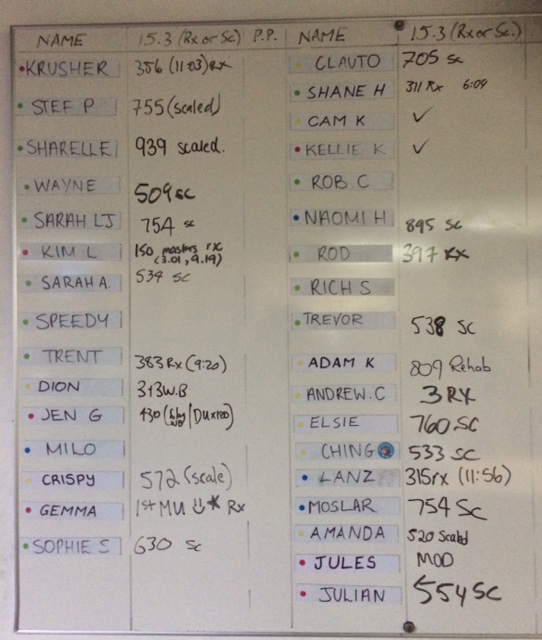 NAME 15.3 (Rx or Sc.) P.P.
KRUSHER 356 (11:03) Rx
STEF P 755 (scaled)
SHARELLE 939 scaled.
WAYNE 509 sc
SARAH LJ 754 sc
KIM L 150 masters rx
(3.01, 9.19)
SARAH A. 534 sc
SPEEDY
TRENT 383 Rx (9:20)
DION 313 W.B
JEN G 430 (
MILO
CRISPY 572 (scale)
GEMMA 1st MU Rx
SOPHIE S 630 sc
NAME 15.3 (Rx or Sc.)
CLAUTO 705 sc
SHANE H 311 Rx 6:09
CAM K ✓
KELLIE K ✓
ROB C
NAOMI H 895 sc
ROD 397 Rx
RICH S
TREVOR 538 sc
ADAM K 809 Rehab
ANDREW.C 3 RX
ELSIE 760 SC
CHING 533 SC
LANZ 315rx (11:56)
MOSLAR 754 Sc
AMANDA 520 Scaled
JULES MOD
JULIAN 554 SC